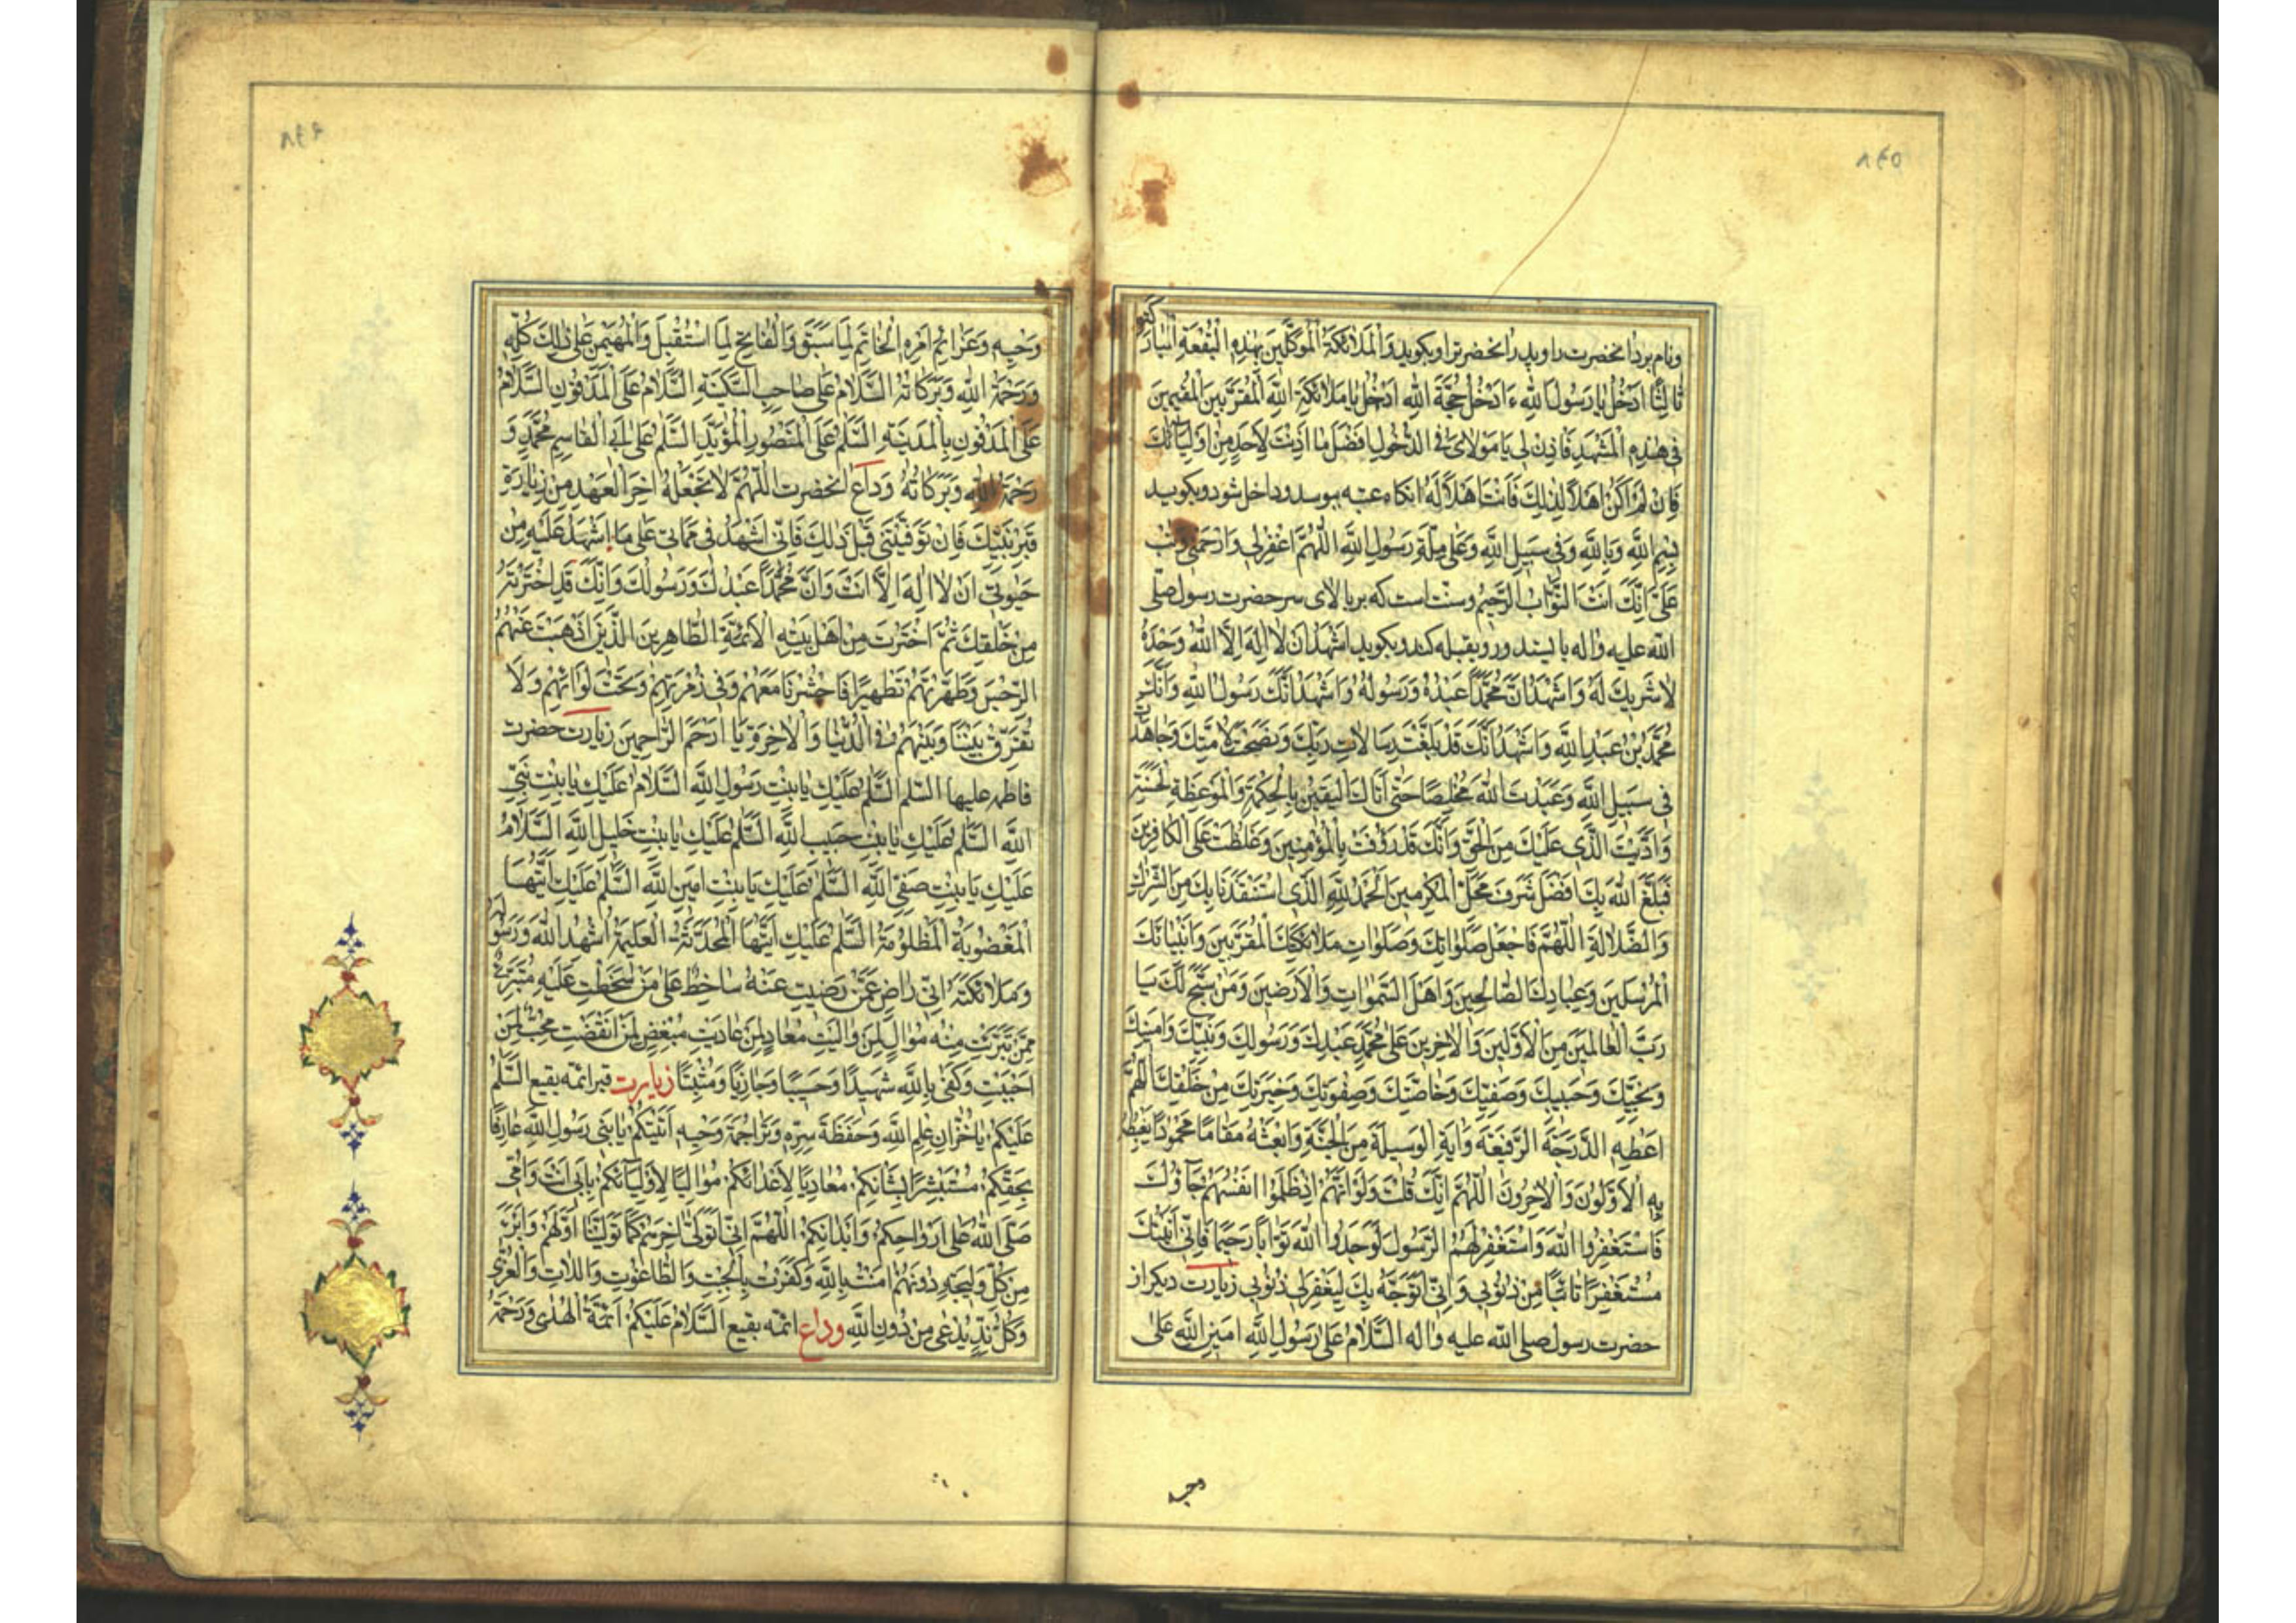 ٨٤٥
ونام برد انحضرت را وپدر انحضرترا وبکوید وَالْمَلَائِکَةَ الْمُوَکَّلِینَ بِهٰذِهِ الْبُقْعَةِ الْمُبَارَکَةِ
ثَالِثًا ءَادْخُلُ یَا رَسُولَ اللّٰهِ ءَادْخُلُ حُجَّةَ اللّٰهِ ءَادْخُلُ یَا مَلَائِکَةَ اللّٰهِ الْمُقَرَّبِینَ الْمُقِیمِینَ
فِی هٰذِهِ الْمَشْهَدِ فَاْذَنْ لِی یَا مَوْلَایَ فِی الدُّخُولِ اَفْضَلَ مَا اَذِنْتَ لِاَحَدٍ مِنْ اَوْلِیَآئِکَ
فَاِنْ لَمْ اَکُنْ اَهْلًا لِذٰلِکَ فَاَنْتَ اَهْلٌ لَهُ انکاه عتبه ببوسد وداخل شود وبکوید
بِسْمِ اللّٰهِ وَبِاللّٰهِ وَفِی سَبِیلِ اللّٰهِ وَعَلٰی مِلَّةِ رَسُولِ اللّٰهِ اَللّٰهُمَّ اغْفِرْ لِی وَارْحَمْنِی وَتُبْ
عَلَیَّ اِنَّکَ اَنْتَ التَّوَّابُ الرَّحِیمُ وسنت است که بر بالای سر حضرت رسول صلی
اللّٰه علیه واله بایستد ورو بقبله کند وبکوید اَشْهَدُ اَنْ لَا اِلٰهَ اِلَّا اللّٰهُ وَحْدَهُ
لَا شَرِیکَ لَهُ وَاَشْهَدُ اَنَّ مُحَمَّدًا عَبْدُهُ وَرَسُولُهُ وَاَشْهَدُ اَنَّکَ رَسُولُ اللّٰهِ وَاَنَّکَ
مُحَمَّدُ بْنُ عَبْدِ اللّٰهِ وَاَشْهَدُ اَنَّکَ قَدْ بَلَّغْتَ رِسَالَاتِ رَبِّکَ وَنَصَحْتَ لِاُمَّتِکَ وَجَاهَدْتَ
فِی سَبِیلِ اللّٰهِ وَعَبَدْتَ اللّٰهَ مُخْلِصًا حَتّٰی اَتَاکَ الْیَقِینُ بِالْحِکْمَةِ وَالْمَوْعِظَةِ الْحَسَنَةِ
وَاَدَّیْتَ الَّذِی عَلَیْکَ مِنَ الْحَقِّ وَاَنَّکَ قَدْ رَؤُفْتَ بِالْمُؤْمِنِینَ وَغَلَظْتَ عَلَی الْکَافِرِینَ
فَبَلَّغَ اللّٰهُ بِکَ اَفْضَلَ شَرَفِ مَحَلِّ الْمُکَرَّمِینَ اَلْحَمْدُ لِلّٰهِ الَّذِی اسْتَنْقَذَنَا بِکَ مِنَ الشِّرْکِ
وَالضَّلَالَةِ اَللّٰهُمَّ فَاجْعَلْ صَلَوَاتِکَ وَصَلَوَاتِ مَلَائِکَتِکَ الْمُقَرَّبِینَ وَاَنْبِیَائِکَ
الْمُرْسَلِینَ وَعِبَادِکَ الصَّالِحِینَ وَاَهْلِ السَّمٰوَاتِ وَالْاَرَضِینَ وَمَنْ سَبَّحَ لَکَ یَا
رَبَّ الْعَالَمِینَ مِنَ الْاَوَّلِینَ وَالْاٰخِرِینَ عَلٰی مُحَمَّدٍ عَبْدِکَ وَرَسُولِکَ وَنَبِیِّکَ وَاَمِینِکَ
وَنَجِیِّکَ وَحَبِیبِکَ وَصَفِیِّکَ وَخَاصَّتِکَ وَصِفْوَتِکَ وَخِیَرَتِکَ مِنْ خَلْقِکَ اَللّٰهُمَّ
اَعْطِهِ الدَّرَجَةَ الرَّفِیعَةَ وَاٰتِهِ الْوَسِیلَةَ مِنَ الْجَنَّةِ وَابْعَثْهُ مَقَامًا مَحْمُودًا یَغْبِطُهُ
بِهِ الْاَوَّلُونَ وَالْاٰخِرُونَ اَللّٰهُمَّ اِنَّکَ قُلْتَ وَلَوْ اَنَّهُمْ اِذْ ظَلَمُوا اَنْفُسَهُمْ جَآؤُکَ
فَاسْتَغْفَرُوا اللّٰهَ وَاسْتَغْفَرَ لَهُمُ الرَّسُولُ لَوَجَدُوا اللّٰهَ تَوَّابًا رَحِیمًا فَاِنِّی اَتَیْتُکَ
مُسْتَغْفِرًا تَائِبًا مِنْ ذُنُوبِی وَاِنِّی اَتَوَجَّهُ بِکَ لِیَغْفِرَ لِی ذُنُوبِی زیارت دیکر از
حضرت رسول صلی اللّٰه علیه واله اَلسَّلَامُ عَلٰی رَسُولِ اللّٰهِ اَمِینِ اللّٰهِ عَلٰی
وحیه
٨٤٦
وَحْیِهِ وَعَزَائِمِ اَمْرِهِ الْخَاتِمِ لِمَا سَبَقَ وَالْفَاتِحِ لِمَا اسْتُقْبِلَ وَالْمُهَیْمِنِ عَلٰی ذٰلِکَ کُلِّهِ
وَرَحْمَةُ اللّٰهِ وَبَرَکَاتُهُ اَلسَّلَامُ عَلٰی صَاحِبِ السَّکِینَةِ اَلسَّلَامُ عَلَی الْمَدْفُونِ السَّلَامُ
عَلَی الْمَدْفُونِ بِالْمَدِینَةِ اَلسَّلٰمُ عَلَی الْمَنْصُورِ الْمُؤَیَّدِ اَلسَّلٰمُ عَلٰی اَبِی الْقَاسِمِ مُحَمَّدٍ وَ
رَحْمَةُ اللّٰهِ وَبَرَکَاتُهُ وَداع انحضرت اَللّٰهُمَّ لَا تَجْعَلْهُ اٰخِرَ الْعَهْدِ مِنْ زِیَارَةِ
قَبْرِ نَبِیِّکَ فَاِنْ تَوَفَّیْتَنِی قَبْلَ ذٰلِکَ فَاِنِّی اَشْهَدُ فِی مَمَاتِی عَلٰی مَا اَشْهَدُ عَلَیْهِ مِنْ
حَیٰوتِی اَنْ لَا اِلٰهَ اِلَّا اَنْتَ وَاَنَّ مُحَمَّدًا عَبْدُکَ وَرَسُولُکَ وَاَنَّکَ قَدِ اخْتَرْتَهُ
مِنْ خَلْقِکَ ثُمَّ اخْتَرْتَ مِنْ اَهْلِ بَیْتِهِ الْاَئِمَّةَ الطَّاهِرِینَ الَّذِینَ اَذْهَبْتَ عَنْهُمُ
الرِّجْسَ وَطَهَّرْتَهُمْ تَطْهِیرًا فَاحْشُرْنَا مَعَهُمْ وَفِی زُمْرَتِهِمْ وَتَحْتَ لِوَائِهِمْ وَلَا
تُفَرِّقْ بَیْنَنَا وَبَیْنَهُمْ فِی الدُّنْیَا وَالْاٰخِرَةِ یَا اَرْحَمَ الرَّاحِمِینَ زیارت حضرت
فاطمه علیها السلم اَلسَّلٰمُ عَلَیْکِ یَا بِنْتَ رَسُولِ اللّٰهِ اَلسَّلَامُ عَلَیْکِ یَا بِنْتَ نَبِیِّ
اللّٰهِ اَلسَّلٰمُ عَلَیْکِ یَا بِنْتَ حَبِیبِ اللّٰهِ اَلسَّلٰمُ عَلَیْکِ یَا بِنْتَ خَلِیلِ اللّٰهِ اَلسَّلَامُ
عَلَیْکِ یَا بِنْتَ صَفِیِّ اللّٰهِ اَلسَّلٰمُ عَلَیْکِ یَا بِنْتَ اَمِینِ اللّٰهِ اَلسَّلٰمُ عَلَیْکِ اَیَّتُهَا
الْمَغْضُوبَةُ الْمَظْلُومَةُ اَلسَّلٰمُ عَلَیْکِ اَیَّتُهَا الْمُحَدَّثَةُ الْعَلِیمَةُ اُشْهِدُ اللّٰهَ وَرَسُولَهُ
وَمَلَائِکَتَهُ اَنِّی رَاضٍ عَمَّنْ رَضِیتِ عَنْهُ سَاخِطٌ عَلٰی مَنْ سَخِطْتِ عَلَیْهِ مُتَبَرِّئٌ
مِمَّنْ تَبَرَّئْتِ مِنْهُ مُوَالٍ لِمَنْ وَالَیْتِ مُعَادٍ لِمَنْ عَادَیْتِ مُبْغِضٌ لِمَنْ اَبْغَضْتِ مُحِبٌّ لِمَنْ
اَحْبَبْتِ وَکَفٰی بِاللّٰهِ شَهِیدًا وَحَسِیبًا وَجَازِیًا وَمُثِیبًا زیارت قبر ائمه بقیع اَلسَّلٰمُ
عَلَیْکُمْ یَا خُزَّانَ عِلْمِ اللّٰهِ وَحَفَظَةَ سِرِّهِ وَتَرَاجِمَةَ وَحْیِهِ اَتَیْتُکُمْ یَا بَنِی رَسُولِ اللّٰهِ عَارِفًا
بِحَقِّکُمْ مُسْتَبْشِرًا بِشَانِکُمْ مُعَادِیًا لِاَعْدَائِکُمْ مُوَالِیًا لِاَوْلِیَآئِکُمْ بِاَبِی اَنْتَ وَاُمِّی
صَلَّی اللّٰهُ عَلٰی اَرْوَاحِکُمْ وَاَبْدَانِکُمْ اَللّٰهُمَّ اِنِّی اَتَوَلّٰی اٰخِرَهُمْ کَمَا تَوَلَّیْتُ اَوَّلَهُمْ وَاَبْرَءُ
مِنْ کُلِّ وَلِیجَةٍ دُونَهُمْ اٰمَنْتُ بِاللّٰهِ وَکَفَرْتُ بِالْجِبْتِ وَالطَّاغُوتِ وَاللَّاتِ وَالْعُزّٰی
وَکُلِّ نِدٍّ یُدْعٰی مِنْ دُونِ اللّٰهِ وداع ائمه بقیع اَلسَّلَامُ عَلَیْکُمْ اَئِمَّةَ الْهُدٰی وَرَحْمَةُ